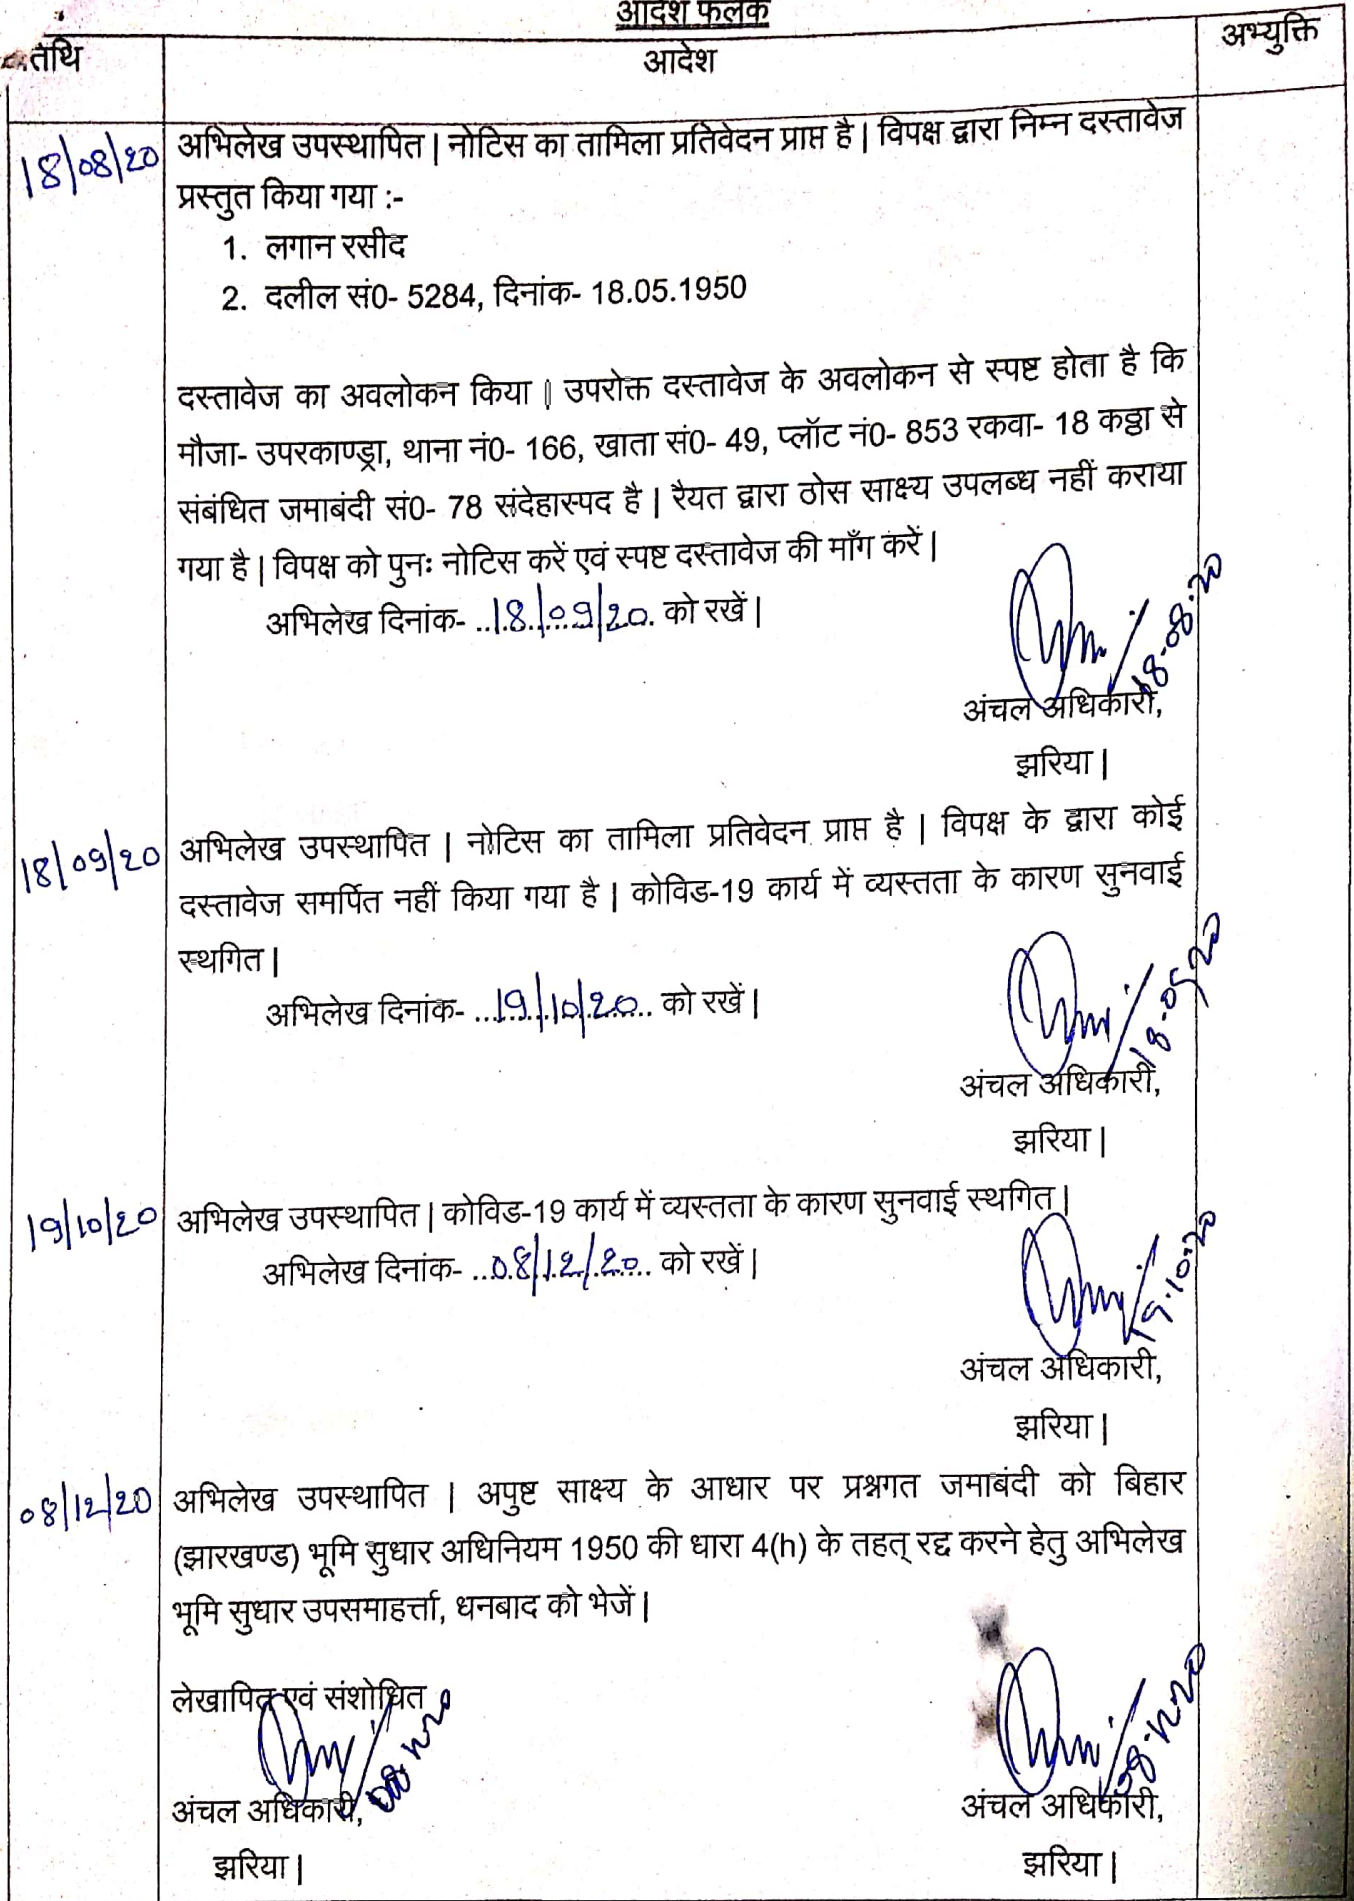 आदेश फलक
तिथि
आदेश
अभ्युक्ति
18/08/20
अभिलेख उपस्थापित | नोटिस का तामिला प्रतिवेदन प्राप्त है | विपक्ष द्वारा निम्न दस्तावेज
प्रस्तुत किया गया :-
1. लगान रसीद
2. दलील सं0- 5284, दिनांक- 18.05.1950
दस्तावेज का अवलोकन किया | उपरोक्त दस्तावेज के अवलोकन से स्पष्ट होता है कि
मौजा- उपरकाण्ड्रा, थाना नं0- 166, खाता सं0- 49, प्लॉट नं0- 853 रकवा- 18 कठ्ठा से
संबंधित जमाबंदी सं0- 78 संदेहास्पद है | रैयत द्वारा ठोस साक्ष्य उपलब्ध नहीं कराया
गया है | विपक्ष को पुनः नोटिस करें एवं स्पष्ट दस्तावेज की माँग करें |
अभिलेख दिनांक- ..18/09/20. को रखें |
18-08-20
अंचल अधिकारी,
झरिया |
18/09/20
अभिलेख उपस्थापित | नोटिस का तामिला प्रतिवेदन प्राप्त है | विपक्ष के द्वारा कोई
दस्तावेज समर्पित नहीं किया गया है | कोविड-19 कार्य में व्यस्तता के कारण सुनवाई
स्थगित |
अभिलेख दिनांक- ...19/10/20... को रखें |
अंचल अधिकारी,
झरिया |
19/10/20
अभिलेख उपस्थापित | कोविड-19 कार्य में व्यस्तता के कारण सुनवाई स्थगित |
अभिलेख दिनांक- ...08/12/20... को रखें |
19.10.20
अंचल अधिकारी,
झरिया |
08/12/20
अभिलेख उपस्थापित | अपुष्ट साक्ष्य के आधार पर प्रश्नगत जमाबंदी को बिहार
(झारखण्ड) भूमि सुधार अधिनियम 1950 की धारा 4(h) के तहत् रद्द करने हेतु अभिलेख
भूमि सुधार उपसमाहर्त्ता, धनबाद को भेजें |
लेखापित एवं संशोधित
08.12.20
08.12.20
अंचल अधिकारी,
अंचल अधिकारी,
झरिया |
झरिया |